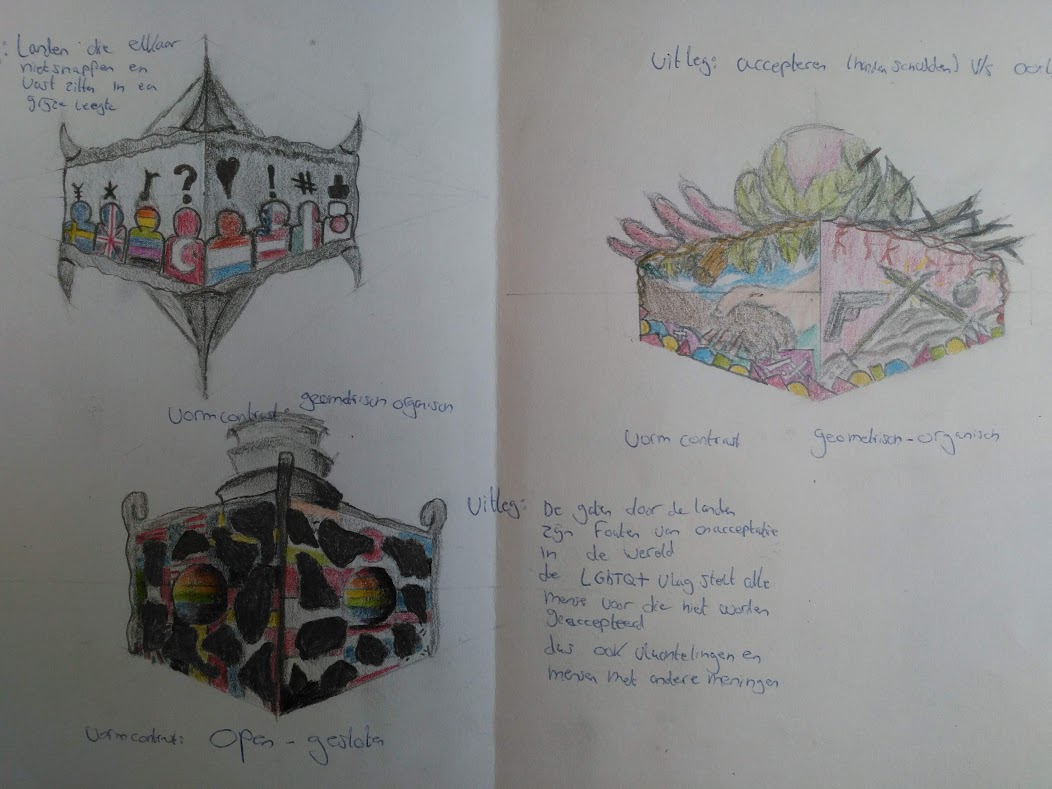 : Landen die elkaar
niet snappen en
vast zitten in een
grijze leegte
¥ * ? ♥ ! #
vormcontrast: geometrisch organisch
vormcontrast: open - gesloten
Uitleg: accepteren (handen schudden) V/s
vorm contrast geometrisch - organisch
Uitleg: De gaten door de landen
zijn fouten van onacceptatie
in de wereld
de LGhTQ+ vlag stelt alle
mense voor die niet worden
geaccepteerd
dus ook vluchtelingen en
mensen met andere meningen